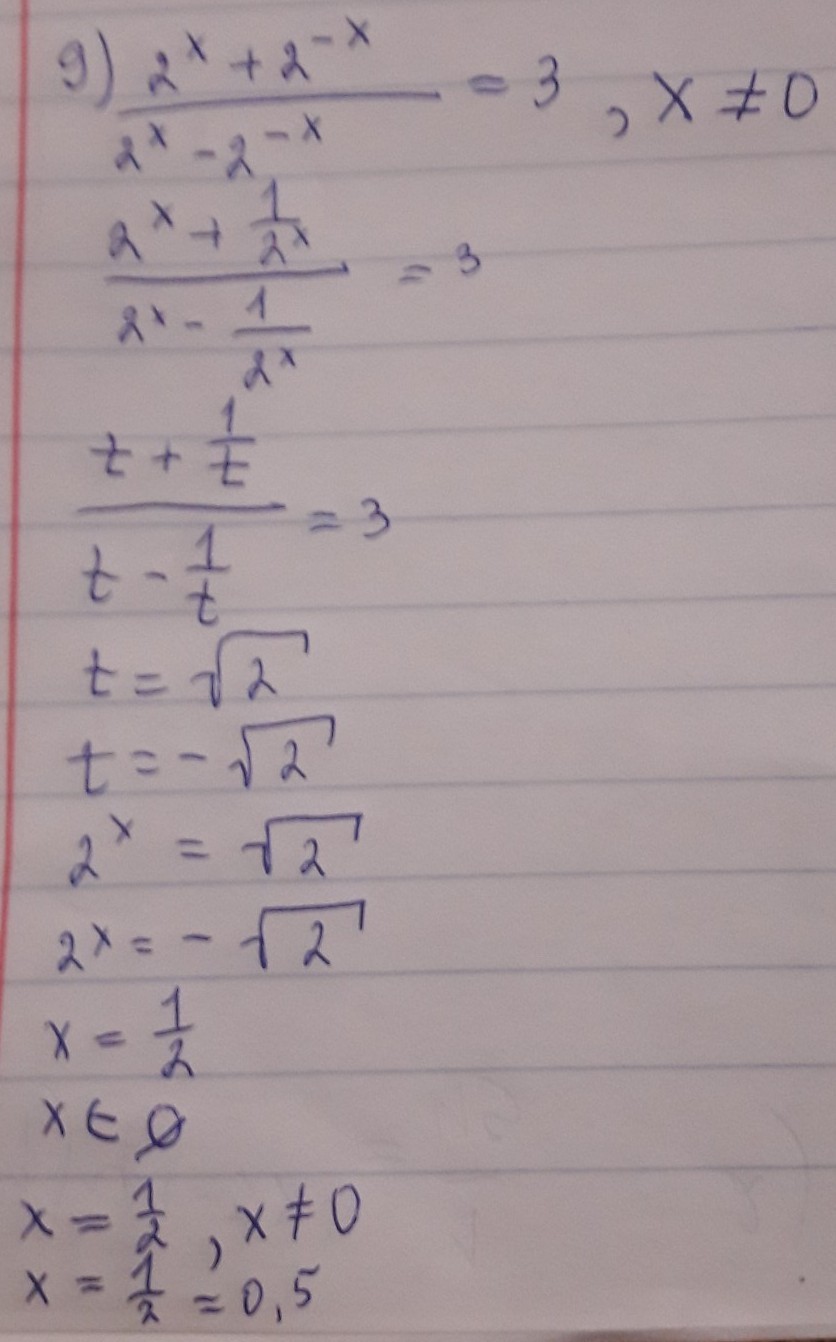 9) (2^x + 2^-x) / (2^x - 2^-x) = 3 , x ≠ 0
(2^x + 1/2^x) / (2^x - 1/2^x) = 3
(t + 1/t) / (t - 1/t) = 3
t = √2
t = - √2
2^x = √2
2^x = - √2
x = 1/2
x ∈ ∅
x = 1/2 , x ≠ 0
x = 1/2 = 0,5